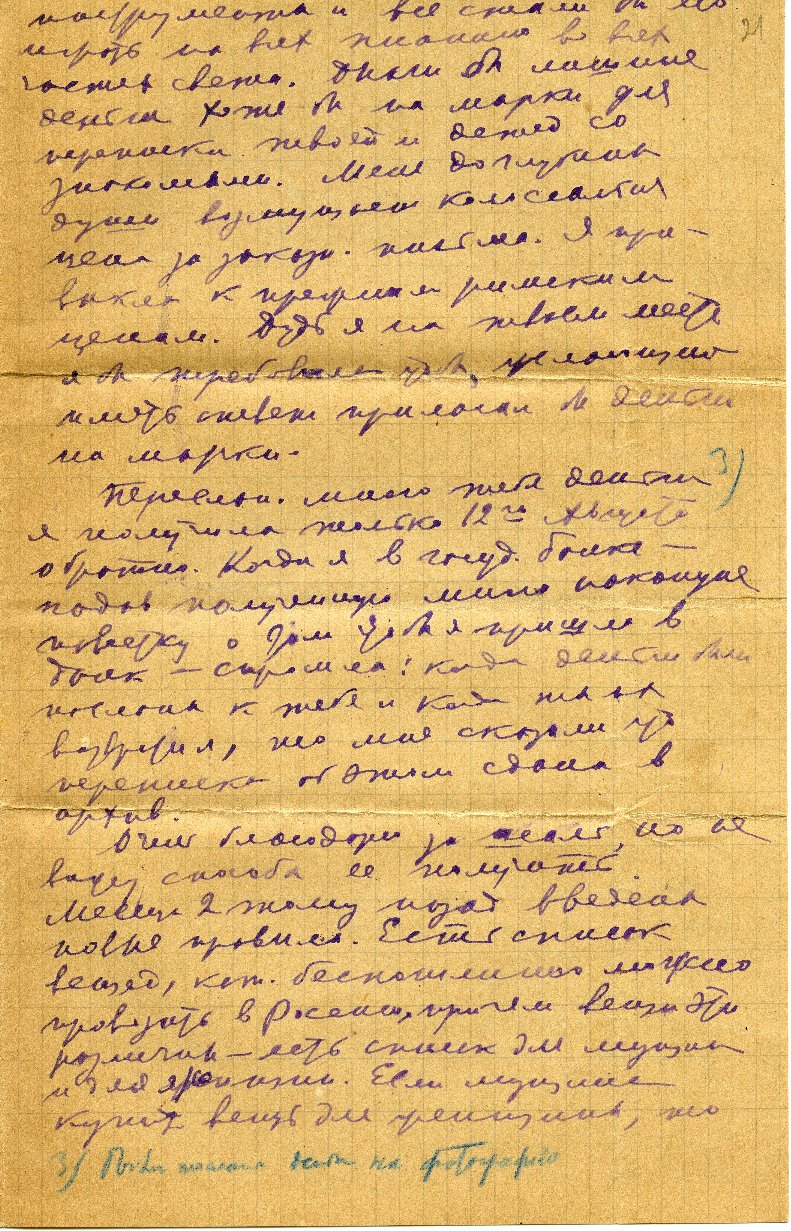 инструмента и все стали бы его
играть на всех пианино во всех
частях света. Были бы лишние
деньги хоть бы на марки для
переписки твоей и детей со
знакомыми. Меня до глубины
души возмущает колоссальная
цена за заказн. письма. Я при-
выкла к прежним римским
ценам. Будь я на твоем месте
я бы требовала чтобы желающие
иметь ответ прилагали бы деньги
на марки.
Переслан. мною тебе деньги 3)
я получила только 12го Августа
обратно. Когда я в госуд. банке —
подав полученную мною накануне
повестку о том чтобы я пришла в
банк — спросила: когда деньги были
посланы к тебе и когда ты их
возвратил, то мне сказали что
переписка об этом сдана в
архив.
Очень благодарю за но не
вижу способа ее получить.
Месяца 2 тому назад введены
новые правила. Есть список
вещей, кот. беспошлинно можно
провозить в Россию, причем вещи эти
различны — есть список для мужчин
и для женщин. Если мужчина
купит вещь для женщины, то
3) деньги на фотографию
21